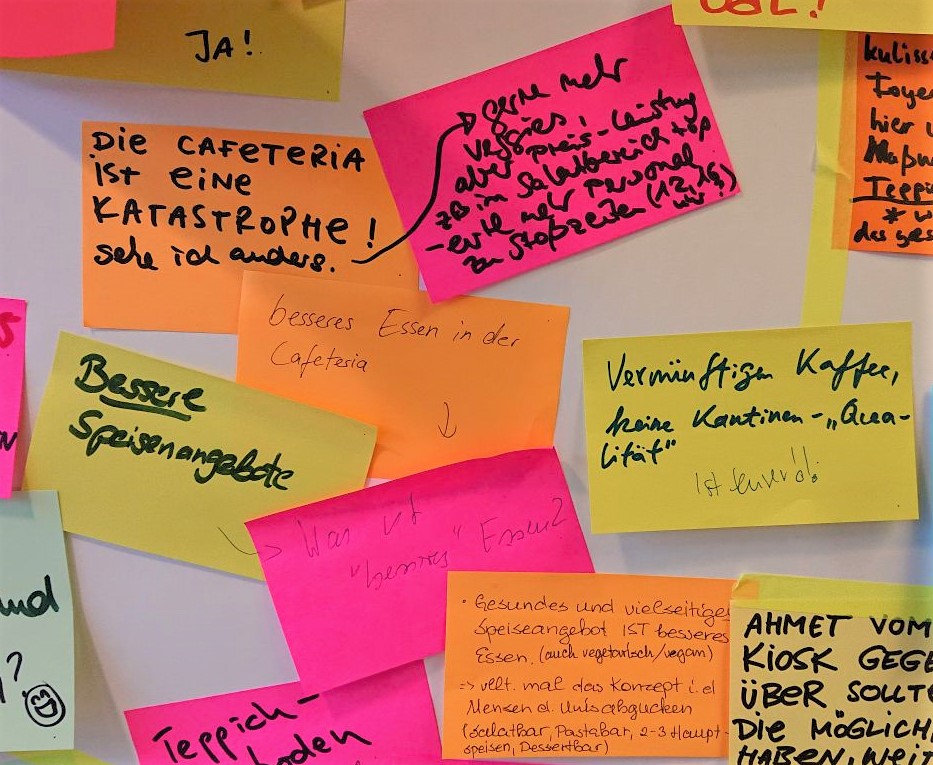 JA!
DIE CAFETERIA
IST EINE
KATASTROPHE!
sehe ich anders.
gerne mehr
veggies,
aber preis-leistung
zB im Salatbereich top
- evtl mehr personal
zu stoßzeiten (12, 13
Foye
hier
Maßn
Teppi
* w
das ges
besseres Essen in der
Cafeteria
↓
Bessere
Speisenangebote
Vernünftigen Kaffee,
keine Kantinen-„Qua-
lität“
Ist teuer!!
→ Was ist
"besseres" Essen?
und
?
• Gesundes und vielseitiges
Speiseangebot IST besseres
Essen. (auch vegetarisch/vegan)
=> vllt. mal das Konzept i. d
Mensen d. Unis abgucken
(Salatbar, Pastabar, 2-3 Haupt-
speisen, Dessertbar)
AHMET VOM
KIOSK GEGE
ÜBER SOLLTE
DIE MÖGLICH
HABEN, WEIT
Teppich-
boden